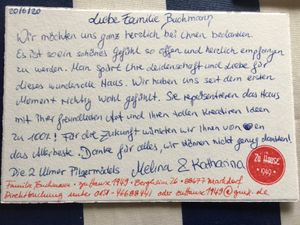 20/6/20
Liebe Familie Buchmann
Wir möchten uns ganz herzlich bei Ihnen bedanken.
Es ist so ein schönes Gefühl so offen und herzlich empfangen
zu werden. Man spürt Ihre Leidenschaft und Liebe für
dieses wundervolle Haus. Wir haben uns seit dem ersten
Moment richtig wohl gefühlt. Sie repräsentieren das Haus
mit Ihrer freundlichen Art und Ihren tollen kreativen Ideen
zu 100%! Für die Zukunft wünschen wir Ihnen von ♥en
das Allerbeste. Danke für alles, wir können nicht genug danken!
Die 2 Ulmer Pilgermädels Melina & Katharina
Zu Hause
1949
Familie Buchmann - zuhause1949 - Bergheim 26 - 88677 Markdorf
Direktbuchung unter 0151 - 46688441 oder zuhause1949@gmx.de